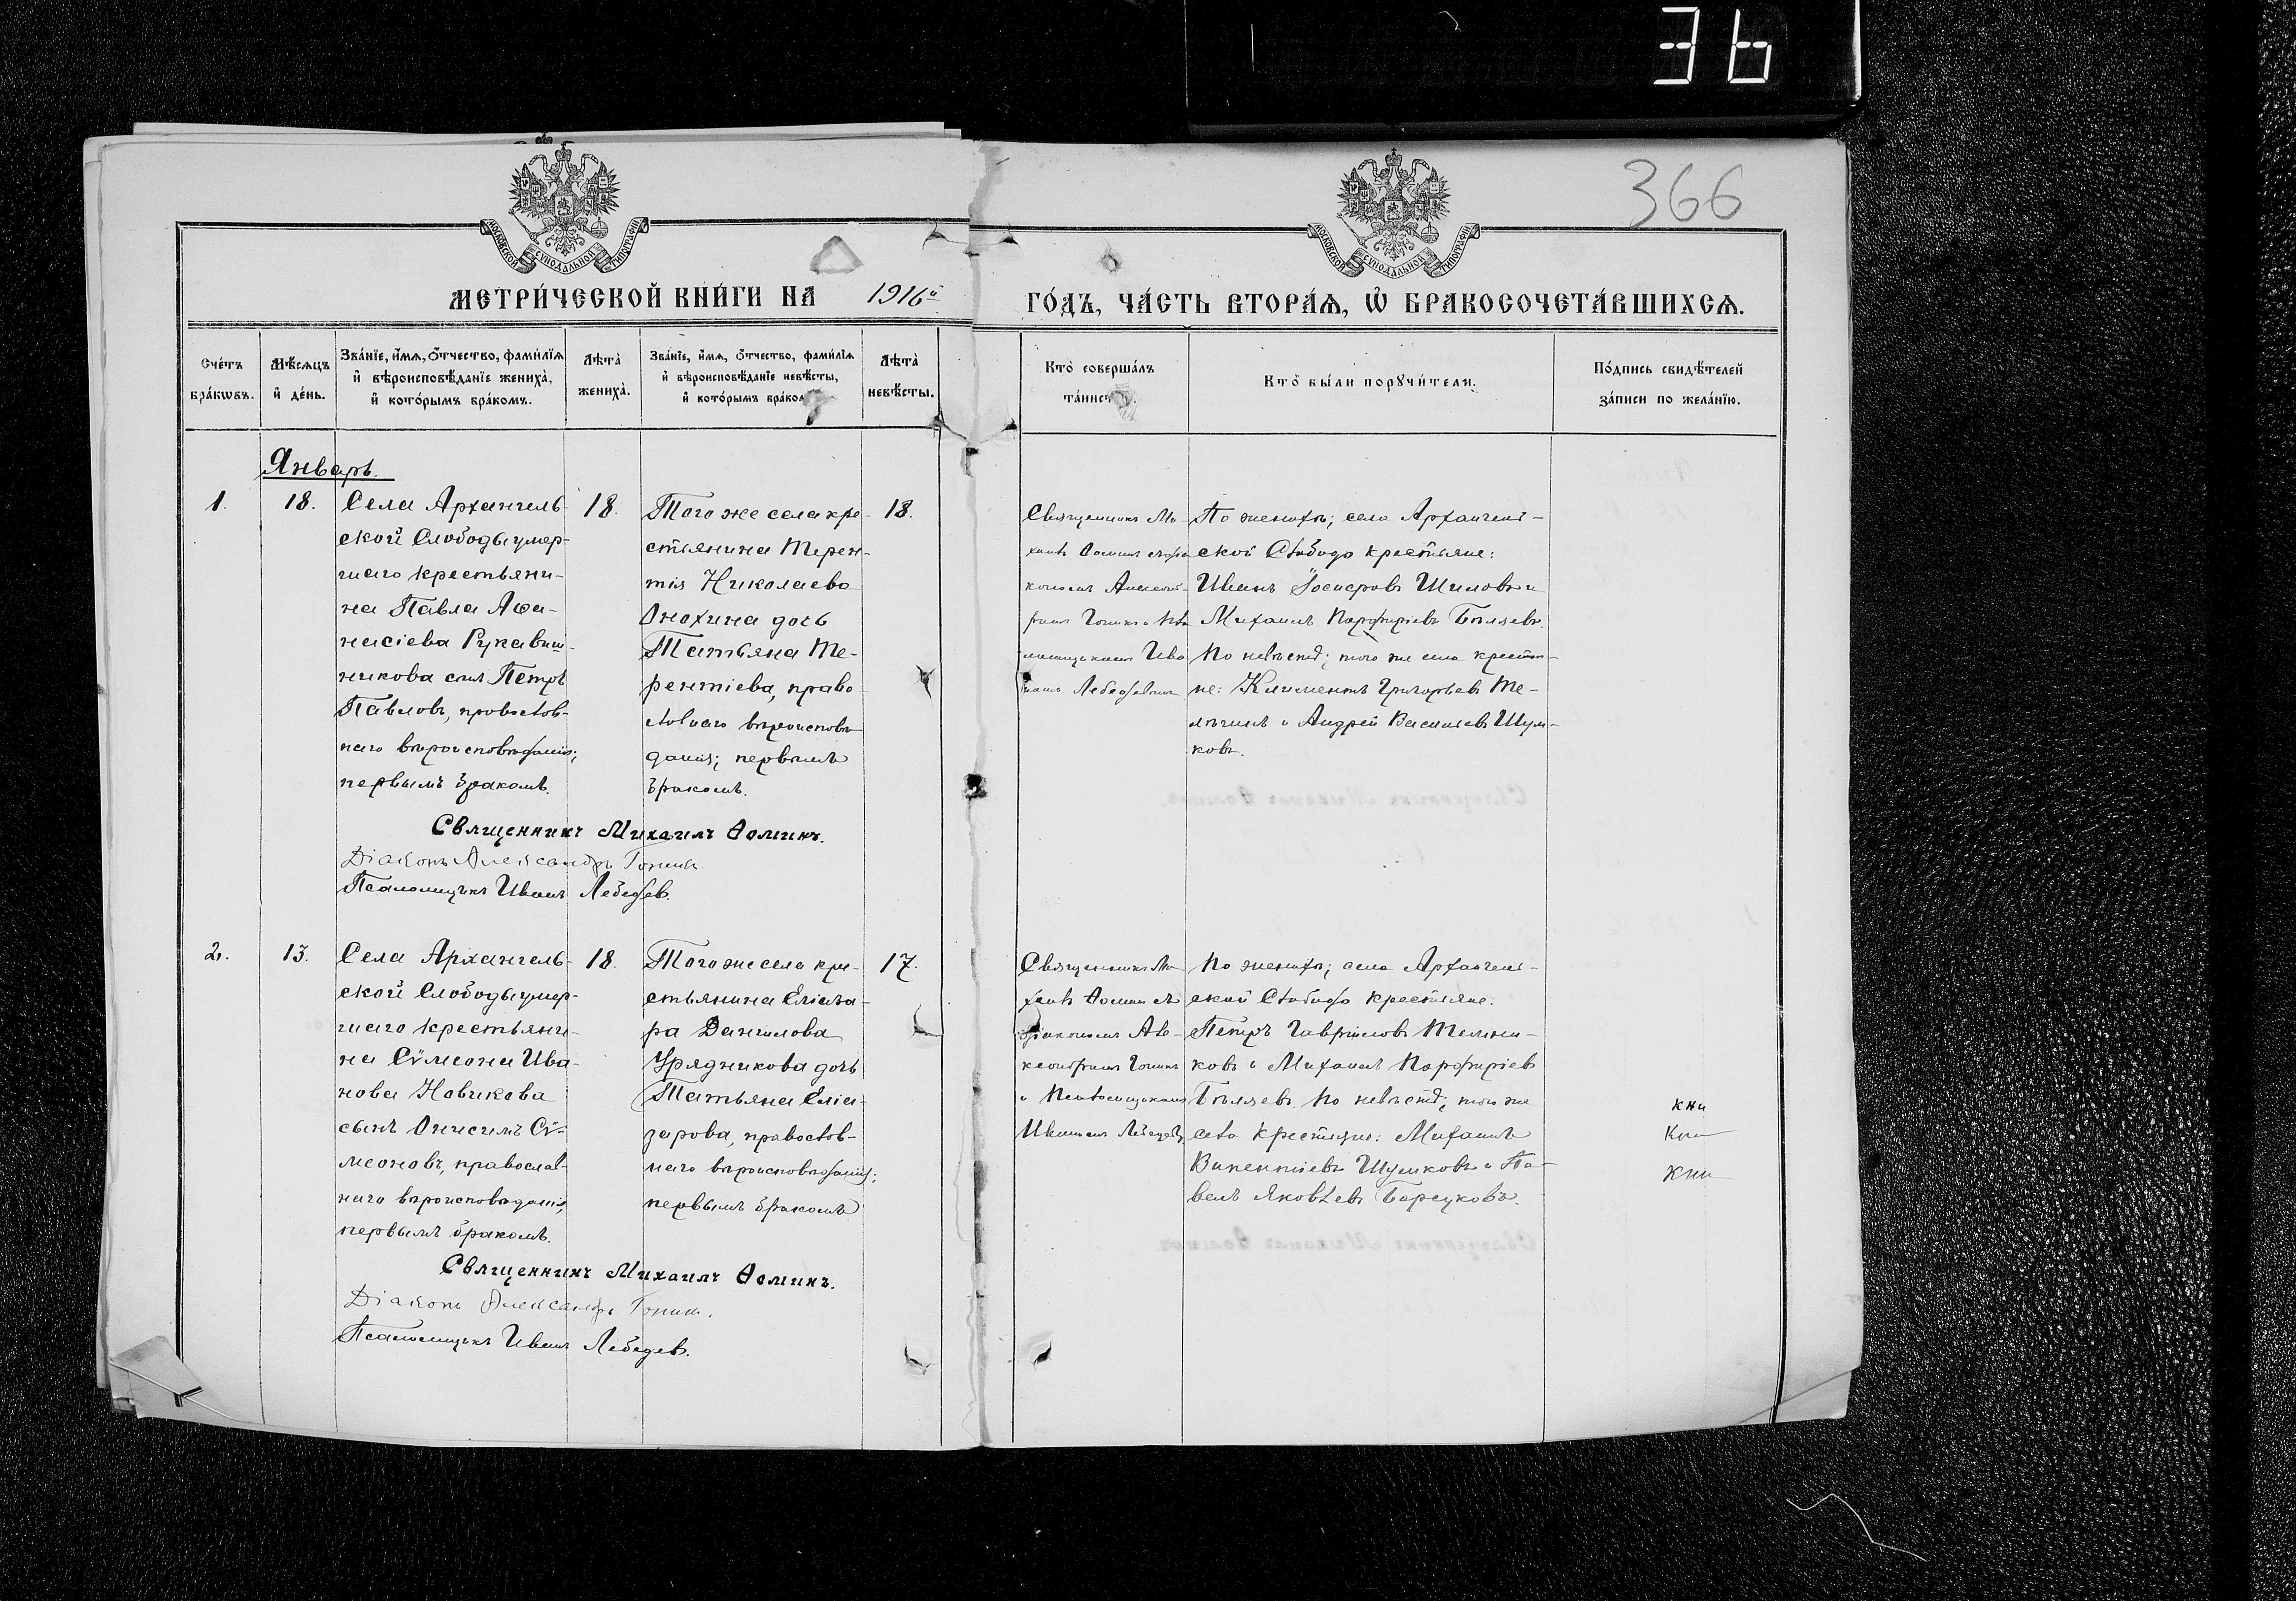 36
366
МОСКОВСКОЙ СѴНОДАЛЬНОЙ ТИПОГРАФІИ
МОСКОВСКОЙ СѴНОДАЛЬНОЙ ТИПОГРАФІИ
МЕТРИ́ЧЕСКОЙ КНИ́ГИ НА 1916й
ГО́ДЪ, ЧА́СТЬ ВТОРА́Ѧ, Ѡ҆ БРАКОСОЧЕТА́ВШИХСѦ.
Сче́тъ
бра́кѡвъ.
Мѣ́сѧцъ
и҆ де́нь.
Зва́нїе, и҆́мѧ, ѻ҆́тчество, фами́лїѧ
и҆ вѣроисповѣ́данїе жениха̀,
и҆ кото́рымъ бра́комъ.
Лѣта̀
жениха̀.
Зва́нїе, и҆́мѧ, ѻ҆́тчество, фами́лїѧ
и҆ вѣроисповѣ́данїе невѣ́сты,
и҆ кото́рымъ бра́ко
Лѣта̀
невѣ́сты.
Кто̀ соверша́лъ
та́инст
Кто̀ бы́ли порꙋчи́тели.
По́дпись свидѣ́телей
за́писи по жела́нїю.
Январь.
1.
18.
Села Архангель-
ской Слободы умер-
шаго крестьяни-
на Павла Аѳа-
насіева Рукавиш-
никова сынъ Петръ
Павловъ, православ-
наго вѣроисповѣданія;
первымъ бракомъ.
18.
Того же села кре-
стьянина Терен-
тія Николаева
Онохина дочь
Татьяна Те-
рентіева, право-
славнаго вѣроисповѣ-
данія; первымъ
бракомъ.
18.
Священникъ Ми-
хаилъ Ѳоминъ
Александ-
ромъ Гонинъ
Ива-
номъ Лебедевымъ
По женихѣ; села Архангель-
ской Слободы крестьяне:
Иванъ Шиловъ и
Михаилъ Парфиріевъ Бѣляевъ.
По невѣстѣ; того же села крестья-
не: Климентъ Григорьевъ Те-
лѣгинъ и Андрей Васильевъ Шум-
ковъ.
Священникъ Михаилъ Ѳоминъ.
Діаконъ Александръ Гонинъ
Псаломщикъ Иванъ Лебедев.
2.
13.
Села Архангель-
ской Слободы умер-
шаго крестьяни-
на Сѵмеона Ива-
нова Новикова
сынъ Онисимъ Сѵ-
меоновъ, православ-
наго вѣроисповѣданія,
первымъ бракомъ.
18.
Того же села кре-
стьянина Еліаза-
ра Данилова
Урядникова дочь
Татьяна Еліа-
зарова, православ-
наго вѣроисповѣданія;
первымъ бракомъ
17.
Священникъ Ми-
хаилъ Ѳоминъ съ
діакономъ Але-
ксандромъ Гонинъ
и Псаломщикомъ
Иваномъ Лебедевъ
По женихѣ; села Архангель-
ской Слободы крестьяне:
Петръ Гавриловъ Мельни-
ковъ и Михаилъ Парфиріевъ
Бѣляевъ. По невѣстѣ; того же
села крестьяне: Михаилъ
Викентіевъ Шумковъ и Па-
велъ Яковлевъ Барсуковъ.
кни
Кни
Кни
Священникъ Михаилъ Ѳоминъ.
Діаконъ Александръ Гонинъ.
Псаломщикъ Иванъ Лебедев.